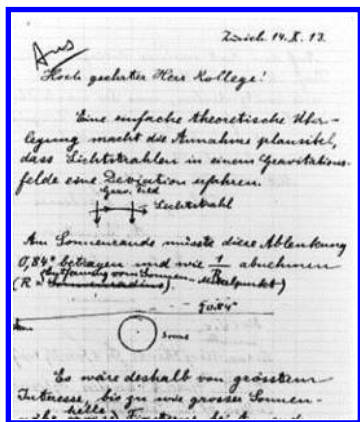 Zürich. 14. X. 13.
Hoch geehrter Herr Kollege!
Eine einfache theoretische Über-
legung macht die Annahme plausibel,
dass Lichtstrahlen in einem Gravitations-
felde eine Deviation erfahren.
Grav. Feld
Lichtstrahl
Am Sonnenrande müsste diese Ablenkung
0,84" betragen und wie 1/R abnehmen
(R = Sonnenradius) (Entfernung vom Sonnen-Mittelpunkt)
0.84"
Sonne
Es wäre deshalb von grösstem
Interesse, bis zu wie grosser Sonnen-
nähe helle Fixsterne bei